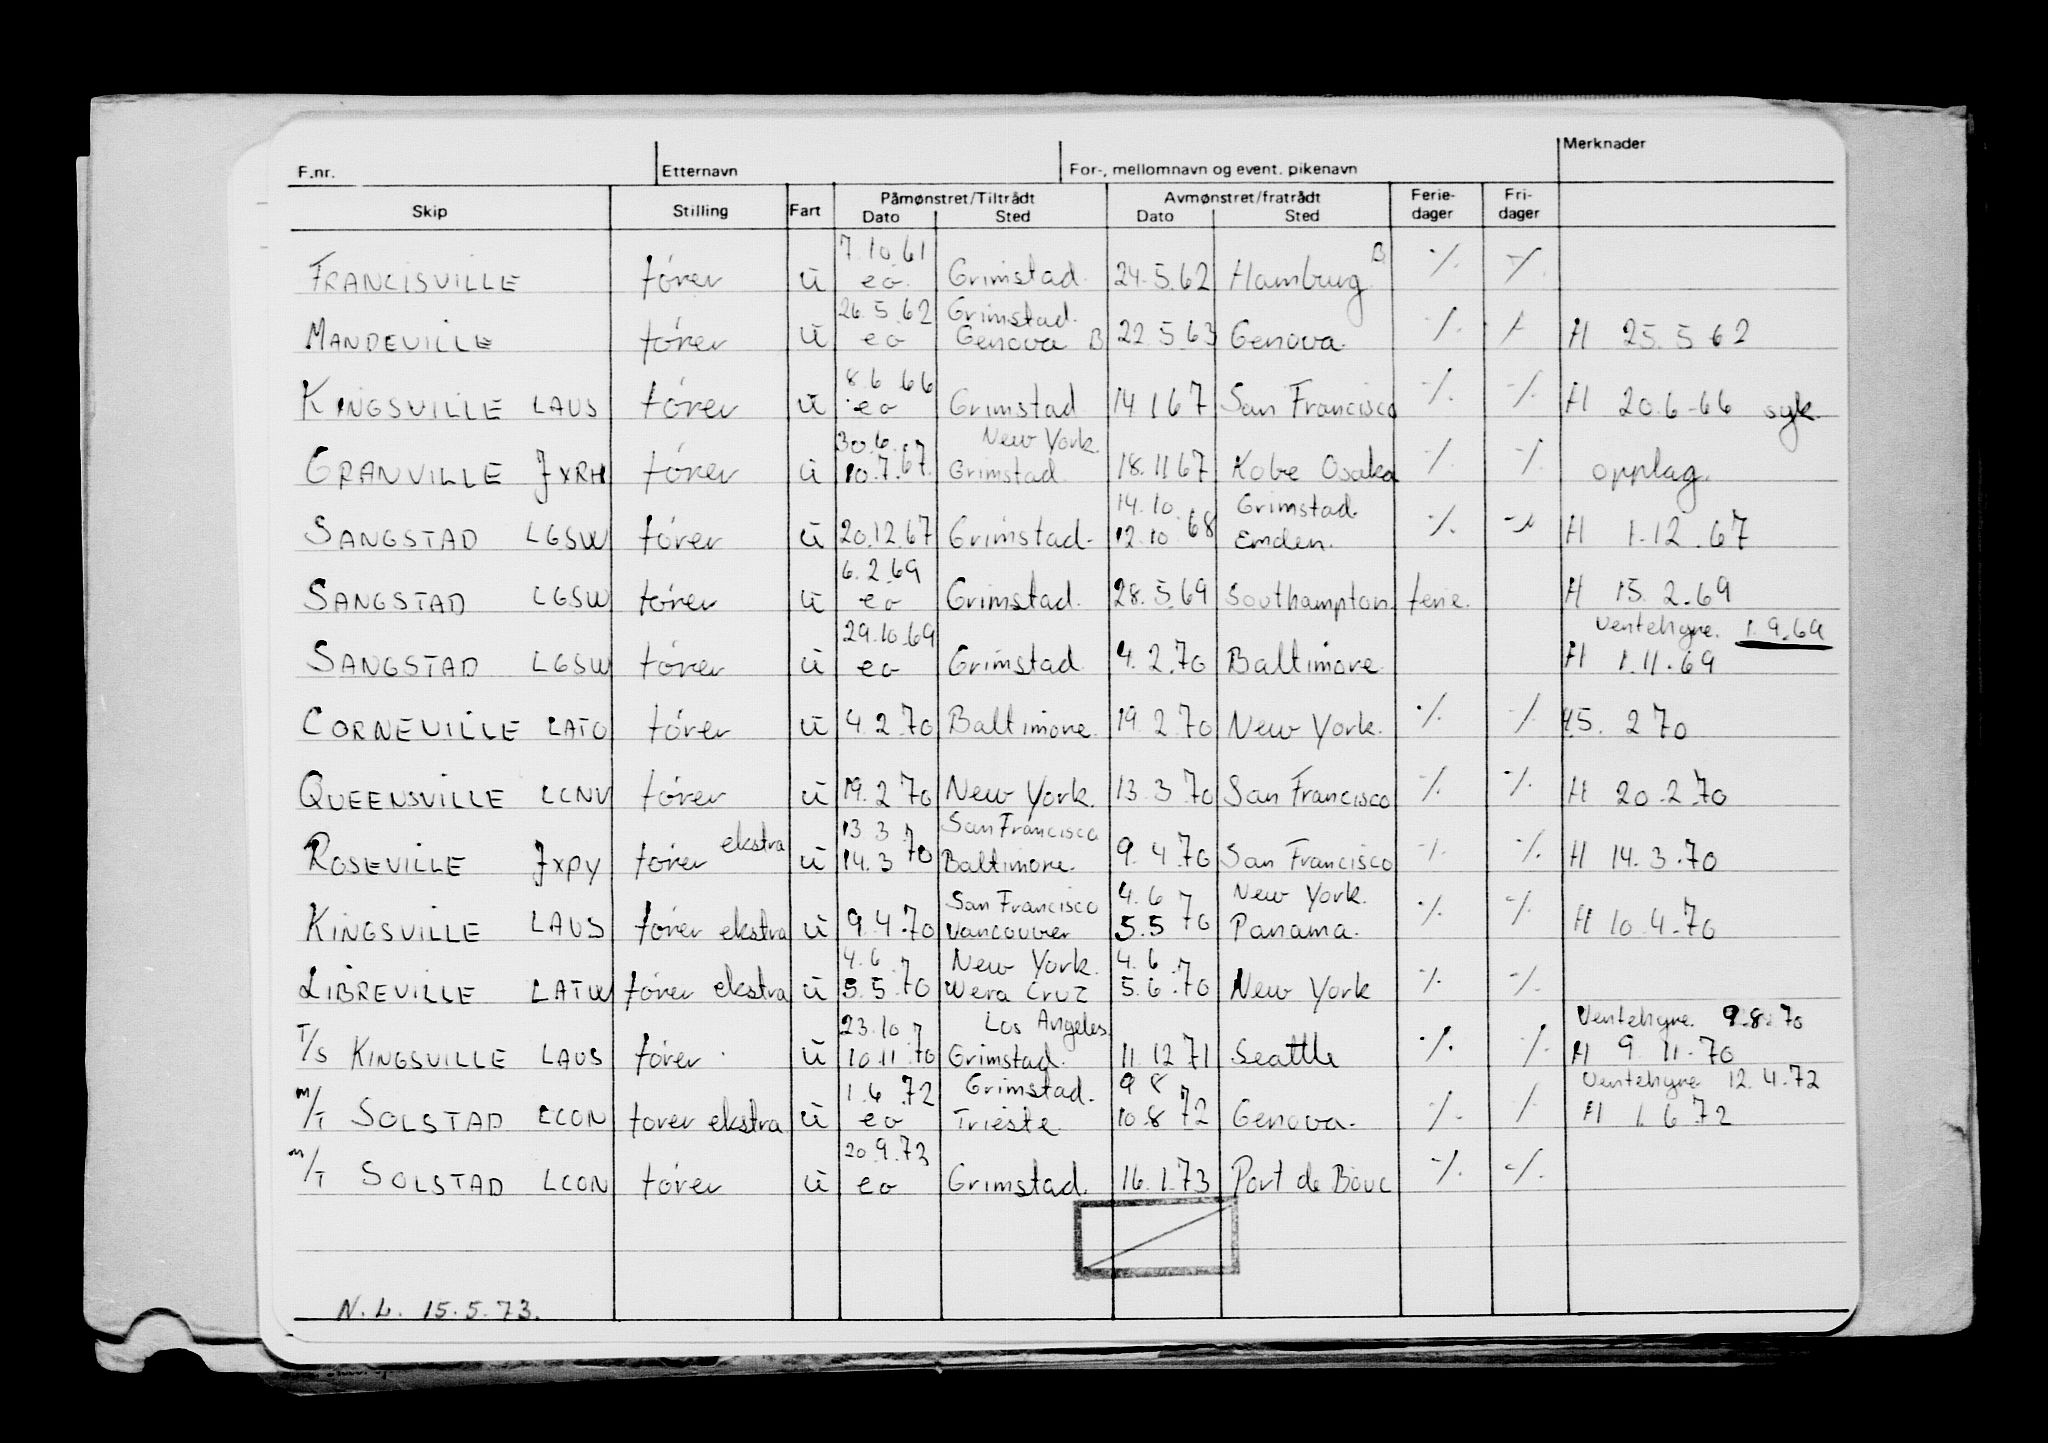 F.nr. Etternavn For-, mellomnavn og event. pikenavn Merknader
Skip Stilling Fart Påmønstret/Tiltrådt Avmønstret/fratrådt Ferie- Fri-
Dato Sted Dato Sted dager dager
7.10.61 B
FRANCISVILLE fører u eo Grimstad. 24.5.62 Hamburg ·/. ·/.
26.5.62 Grimstad.
MANDEVILLE fører u eo Genova B 22.5.63 Genova. ·/. ·/. H 25.5 62
8.6 66
KINGSVILLE LAUS fører u eo Grimstad 14 1 67 San Francisco ·/. ·/. H 20.6-66 syk
30.6. New York.
GRANVILLE JXRH fører u 10.7.67. Grimstad. 18.11 67 Kobe Osaka ·/. ·/. opplag.
14.10. Grimstad.
SANGSTAD LGSW fører u 20.12.67 Grimstad. 12.10.68 Emden. ·/. ·/. H 1.12.67
6.2.69
SANGSTAD LGSW fører u eo Grimstad. 28.5.69 Southampton ferie. H 15.2.69
29.10.69 Ventehyre. 1.9.69
SANGSTAD LGSW fører u eo Grimstad 4.2.70 Baltimore. H 1.11.69
CORNEVILLE LATO fører u 4.2.70 Baltimore. 19.2.70 New York. ·/. ·/. 5. 2 70
QUEENSVILLE LCNV fører u 19.2.70 New York. 13.3.70 San Francisco ·/. ·/. H 20.2.70
13.3 San Francisco
ROSEVILLE JXPY fører ekstra u 14.3 70 Baltimore. 9.4.70 San Francisco ·/. ·/. H 14.3.70
San Francisco 4.6 New York.
KINGSVILLE LAUS fører ekstra u 9.4.70 Vancouver 5.5 70 Panama. ·/. ·/. H 10.4.70
4.6. New York. 4.6
LIBREVILLE LATW fører ekstra u 5.5.70 Wera Cruz 5.6.70 New York ·/. ·/.
23.10 Los Angeles. Ventehyre. 9.8.70
T/S KINGSVILLE LAUS fører. u 10.11.70 Grimstad. 11.12 71 Seattle ·/. ·/. H 9.11.70
1.6.72 Grimstad. 9 8 Ventehyre 12.4.72
M/T SOLSTAD LCON fører ekstra u eo Trieste. 10.8 72 Genova. ·/. ·/. H 1.6.72
20.9.73
M/T SOLSTAD LCON fører u eo Grimstad. 16.1.73 Port de Bouc ·/. ·/.
N.L. 15.5.73.